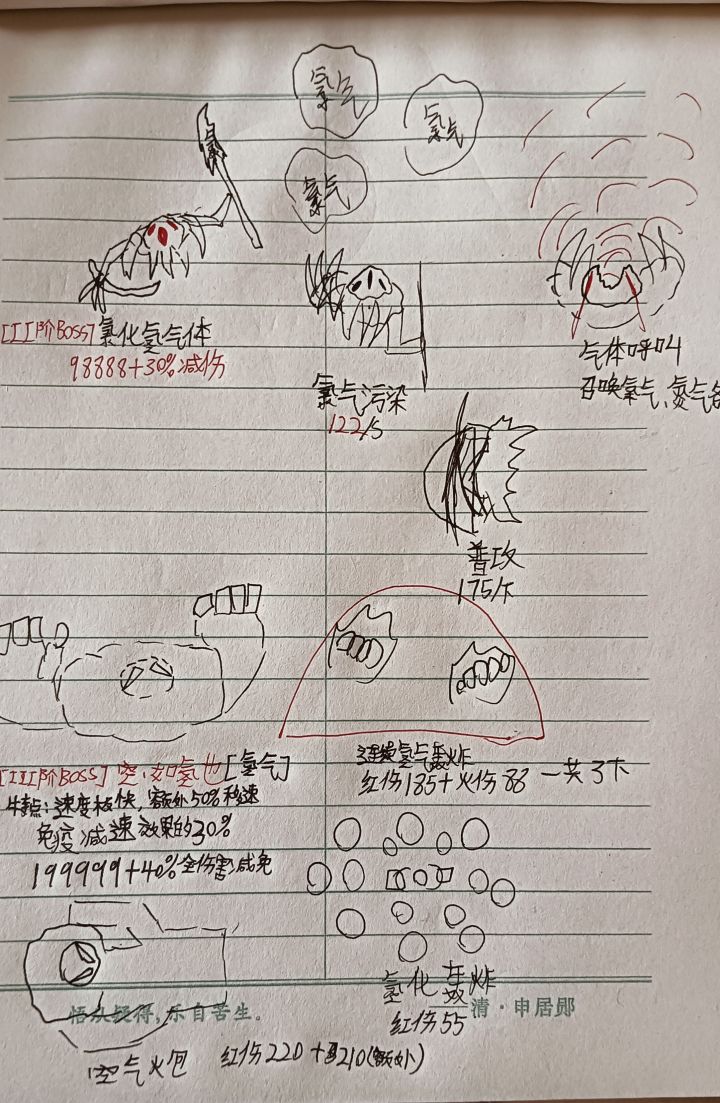 氯气
氯气
氯气
[II阶BOSS]氯化氢气体
98888+30%减伤
氯气污染
122/s
气体呼叫
召唤氯气、氮气
普攻
175/下
[III阶BOSS]空·如氢也[氢气]
特点:速度极快,额外50%移速
免疫减速效果的30%
199999+40%全伤害减免
连续氢气轰炸
红伤185+火伤88 一共3下
氢化轰炸
红伤55
悟从疑得,乐自苦生。
清·申居郧
空气火包 红伤220+210(额外)